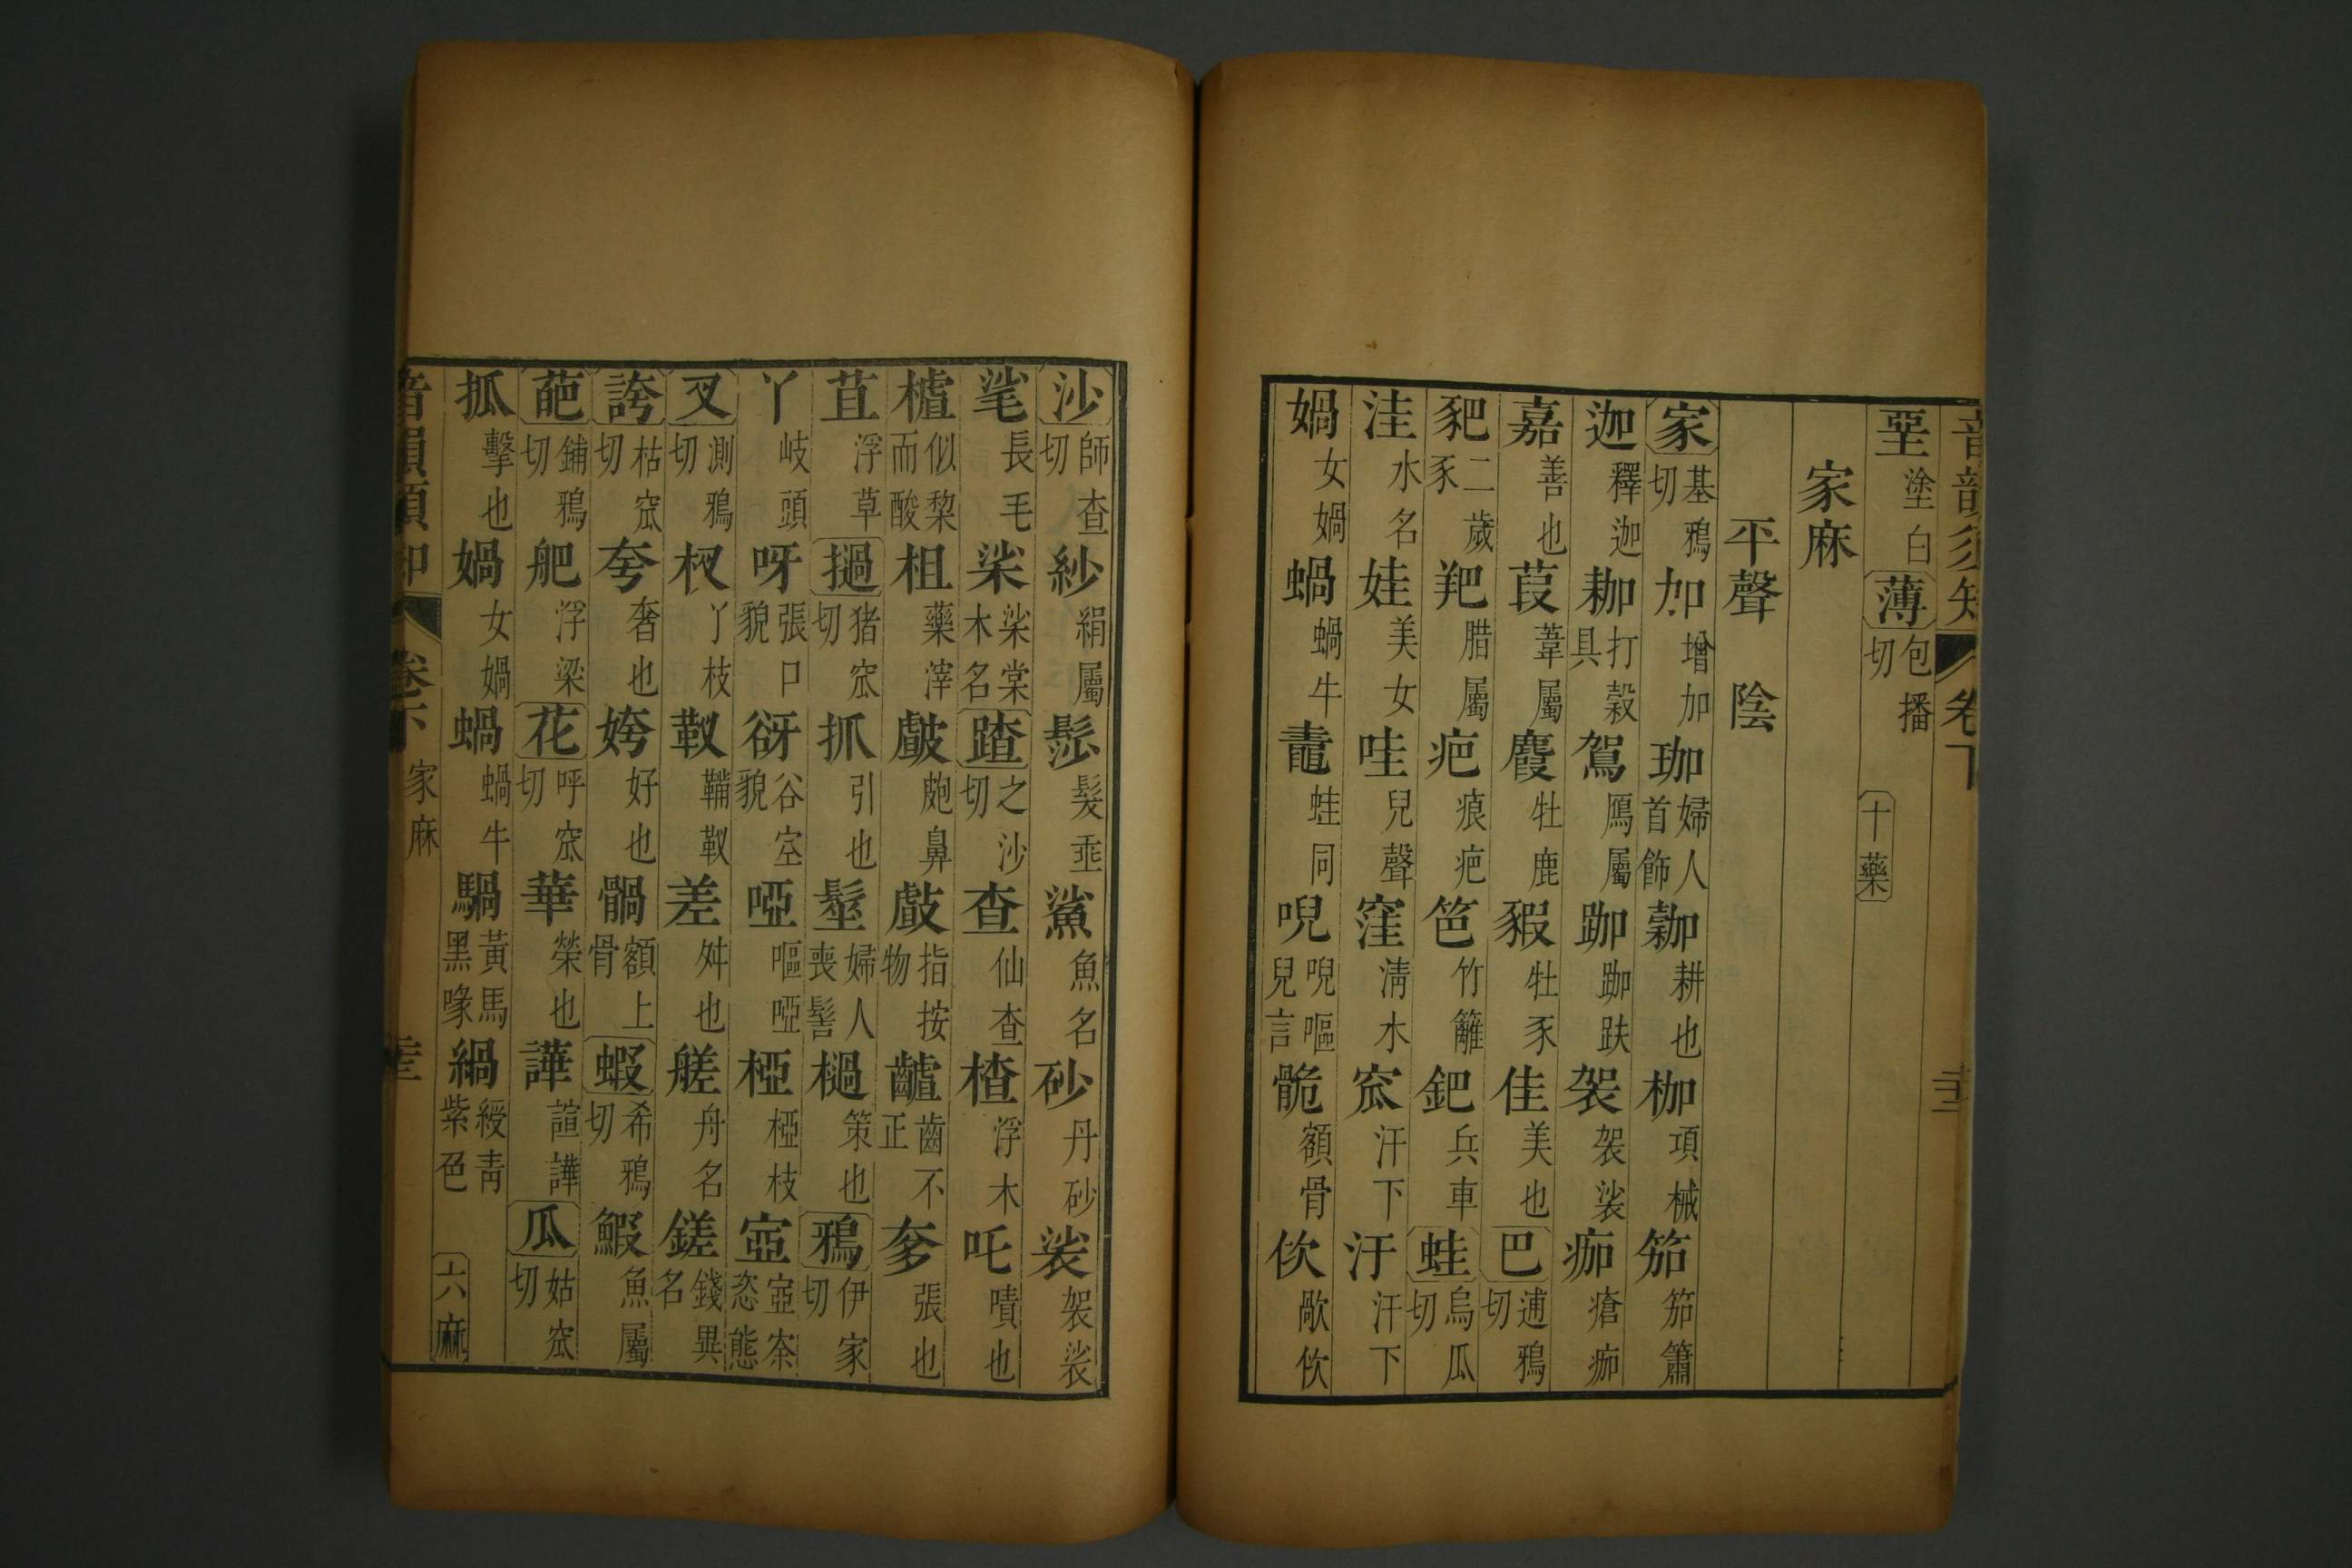 音韻須知 卷下
堊塗白 薄包播切 十藥
家麻
平聲 陰
家基鴉切 加增加 珈婦人首飾 耞耕也 枷項械 笳笳簫
迦釋迦 耞打穀具 鴐鴈屬 跏跏趺 袈袈裟 痂瘡痂
嘉善也 葭葦屬 麚牡鹿 豭牡豕 佳美也 巴逋鴉切
豝二歲豕 羓腊屬 疤痕疤 笆竹籬 鈀兵車 蛙烏瓜切
洼水名 娃美女 哇兒聲 窪清水 窊汙下 汙汙下
媧女媧 蝸蝸牛 鼃蛙同 唲唲嘔兒言 骫額骨 㰧歒㰧
沙師查切 紗絹屬 髿髮垂 鯊魚名 砂丹砂 裟袈裟
髦長毛 桬桬棠木名 蹅之沙切 查仙查 楂浮木 吒嘖也
樝似棃而酸 柤藥滓 皻皰鼻 戲指按物 齇齒不正 奓張也
苴浮草 撾猪窊切 抓引也 髽婦人喪髻 檛策也 鴉伊家切
丫岐頭 呀張口貌 谺谷空貌 啞嘔啞 椏椏枝 窫窫奈恣態
叉測鴉切 杈丫枝 靫鞴靫 差舛也 艖舟名 鎈錢異名
誇枯窊切 夸奢也 姱好也 髂額上骨 蝦希鴉切 鰕魚屬
葩鋪鴉切 舥浮梁 花呼窊切 華榮也 譁諠譁 瓜姑窊切
抓擊也 媧女媧 蝸蝸牛 騧黃馬黑喙 緺綬青紫色 六麻
音韻須知 卷下 家麻